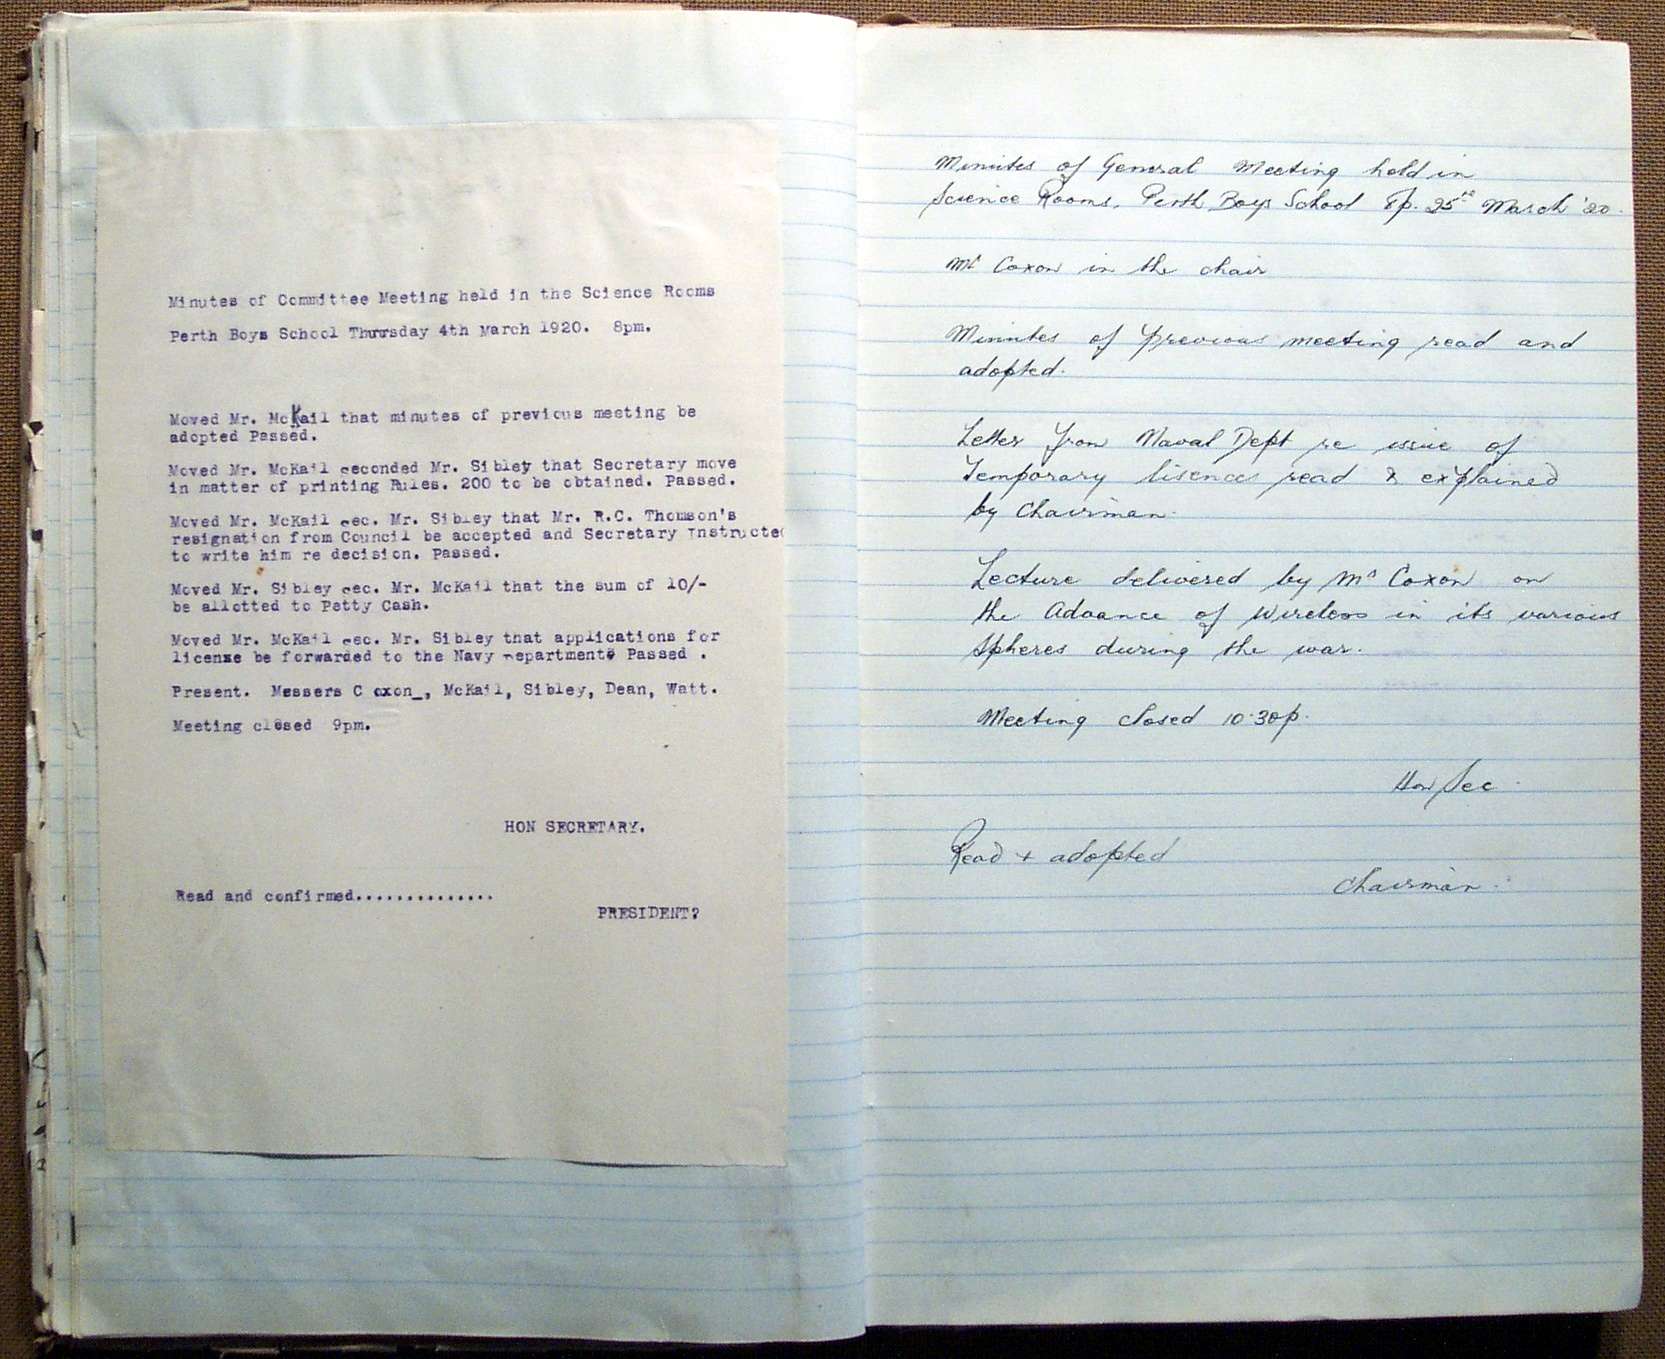 Minutes of Committee Meeting held in the Science Rooms
Perth Boys School Thuursday 4th March 1920. 8pm.
Moved Mr. McKail that minutes of previous meeting be
adopted Passed.
Moved Mr. McKail seconded Mr. Sibley that Secretary move
in matter of printing Rules. 200 to be obtained. Passed.
Moved Mr. McKail sec. Mr. Sibley that Mr. R.C. Thomson's
resignation from Council be accepted and Secretary Instructed
to write him re decision. Passed.
Moved Mr. Sibley sec. Mr. McKail that the sum of 10/-
be allotted to Petty Cash.
Moved Mr. McKail sec. Mr. Sibley that applications for
license be forwarded to the Navy Department Passed .
Present. Messers C oxon_, McKail, Sibley, Dean, Watt.
Meeting closed 9pm.
HON SECRETARY.
Read and confirmed...............
PRESIDENT?
Minutes of General Meeting held in
Science Rooms, Perth Boys School 8p. 25th March '20.
Mr Coxon in the chair
Minutes of previous meeting read and
adopted.
Letter from Naval Dept re issue of
Temporary lisences read & explained
by Chairman.
Lecture delivered by Mr Coxon on
the Advance of Wireless in its various
spheres during the war.
Meeting closed 10.30p.
Hon Sec.
Read + adopted
Chairman.